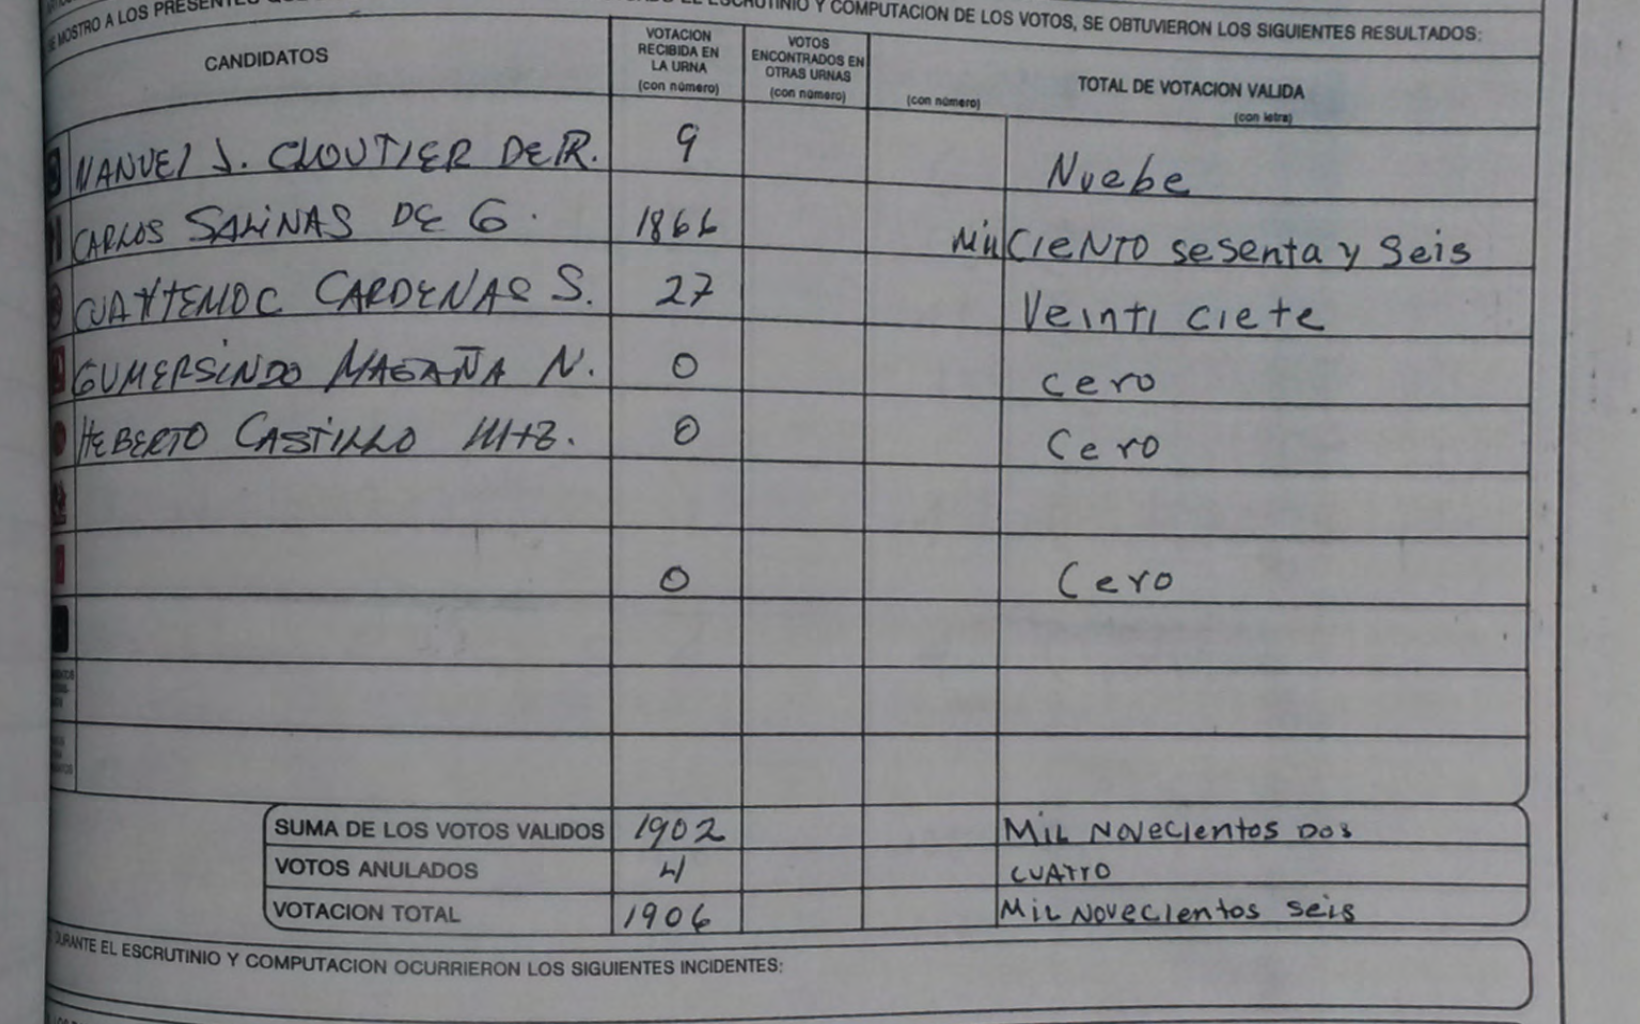 SE MOSTRO A LOS PRESENTES
ESCRUTINIO Y COMPUTACION DE LOS VOTOS, SE OBTUVIERON LOS SIGUIENTES RESULTADOS:
CANDIDATOS
VOTACION
RECIBIDA EN
LA URNA
(con número)
VOTOS
ENCONTRADOS EN
OTRAS URNAS
(con número)
(con número)
TOTAL DE VOTACION VALIDA
(con letra)
MANUEL J. CLOUTIER DE R. 9 Nuebe
CARLOS SALINAS DE G. 1866 Mil CIENTO sesenta y Seis
CUAHTEMOC CARDENAS S. 27 Veinti ciete
GUMERSINDO MAGAÑA N. 0 cero
HEBERTO CASTILLO MtZ. 0 Cero
0 Cero
SUMA DE LOS VOTOS VALIDOS 1902 Mil Novecientos Dos
VOTOS ANULADOS 4 CUATTO
VOTACION TOTAL 1906 Mil Novecientos Seis
DURANTE EL ESCRUTINIO Y COMPUTACION OCURRIERON LOS SIGUIENTES INCIDENTES: